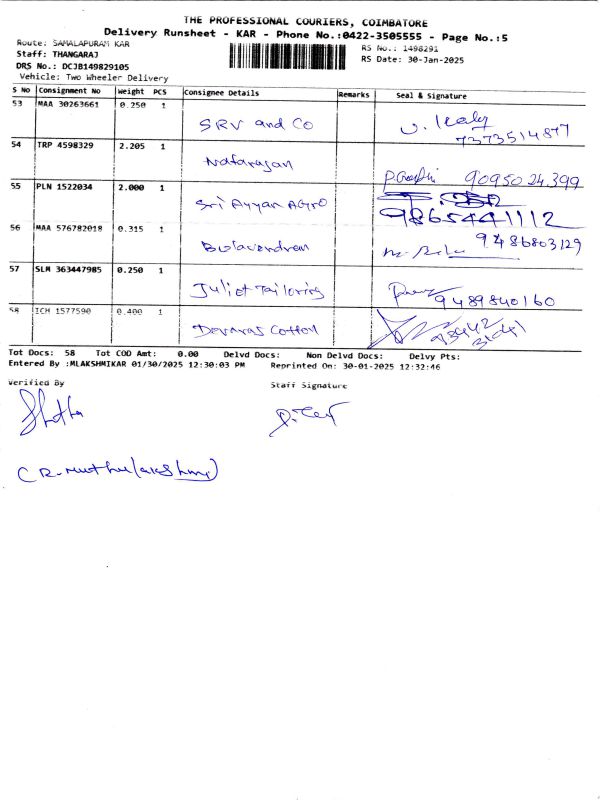 THE PROFESSIONAL COURIERS, COIMBATORE
Delivery Runsheet - KAR - Phone No.:0422-3505555 - Page No.:5
Route: SAMALAPURAM KAR
Staff: THANGARAJ
DRS No.: DCJB149829105
Vehicle: Two Wheeler Delivery
RS No.: 1498291
RS Date: 30-Jan-2025
S No Consignment No Weight PCS Consignee Details Remarks Seal & Signature
53 MAA 30263661 0.250 1
SRV and Co
7373514877
54 TRP 4598329 2.205 1
Natarajan
9095024399
55 PLN 1522034 2.000 1
Sri Ayyan Agro
9865441112
56 MAA 576782018 0.315 1
9486803129
57 SLM 363447985 0.250 1
Juliet Tailoring
9489840160
58 ICH 1577590 0.400 1
Devaras Cotton
Tot Docs: 58 Tot COD Amt: 0.00 Delvd Docs: Non Delvd Docs: Delvy Pts:
Entered By :MLAKSHMIKAR 01/30/2025 12:30:03 PM Reprinted On: 30-01-2025 12:32:46
Verified By Staff Signature